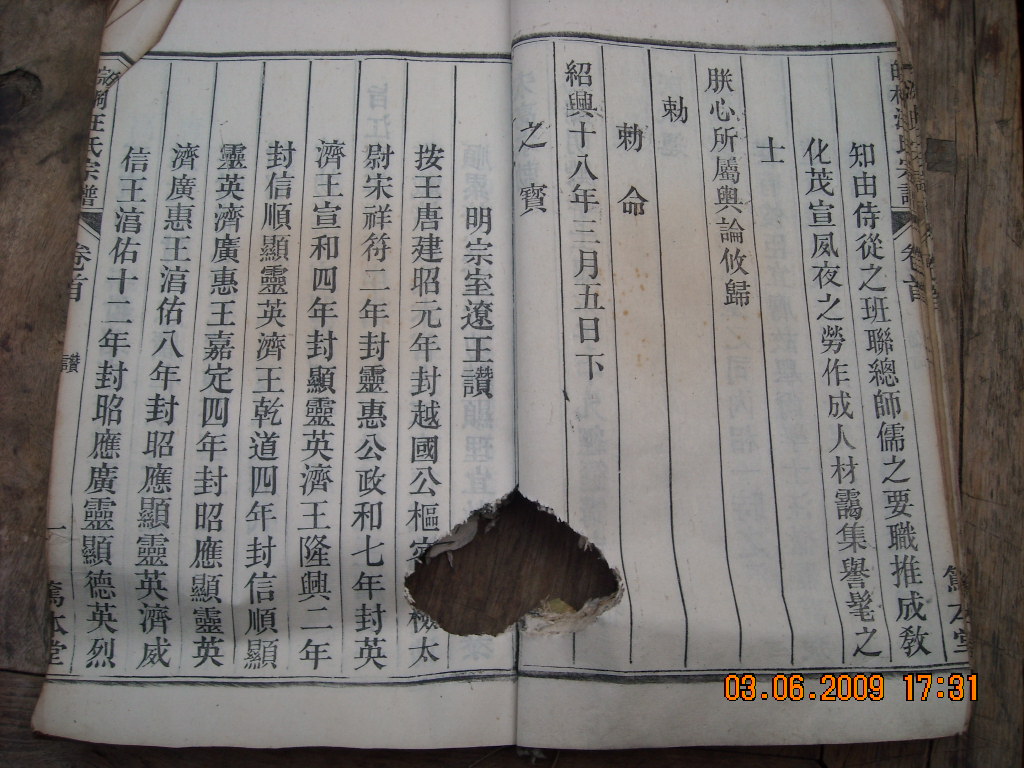 知由侍從之班聯總師儒之要職推成教
化茂宣夙夜之勞作成人材靄集譽髦之
士
朕心所屬輿論攸歸
勅
勅命
紹興十八年三月五日下
之寶
明宗室遼王讚
按王唐建昭元年封越國公樞 太
尉宋祥符二年封靈惠公政和七年封英
濟王宣和四年封顯靈英濟王隆興二年
封信順顯靈英濟王乾道四年封信順顯
靈英濟廣惠王嘉定四年封昭應顯靈英
濟廣惠王湻佑八年封昭應顯靈英濟威
信王湻佑十二年封昭應廣靈顯德英烈
汪氏宗譜 卷首 讚 一 篤本堂
03.06.2009 17:31